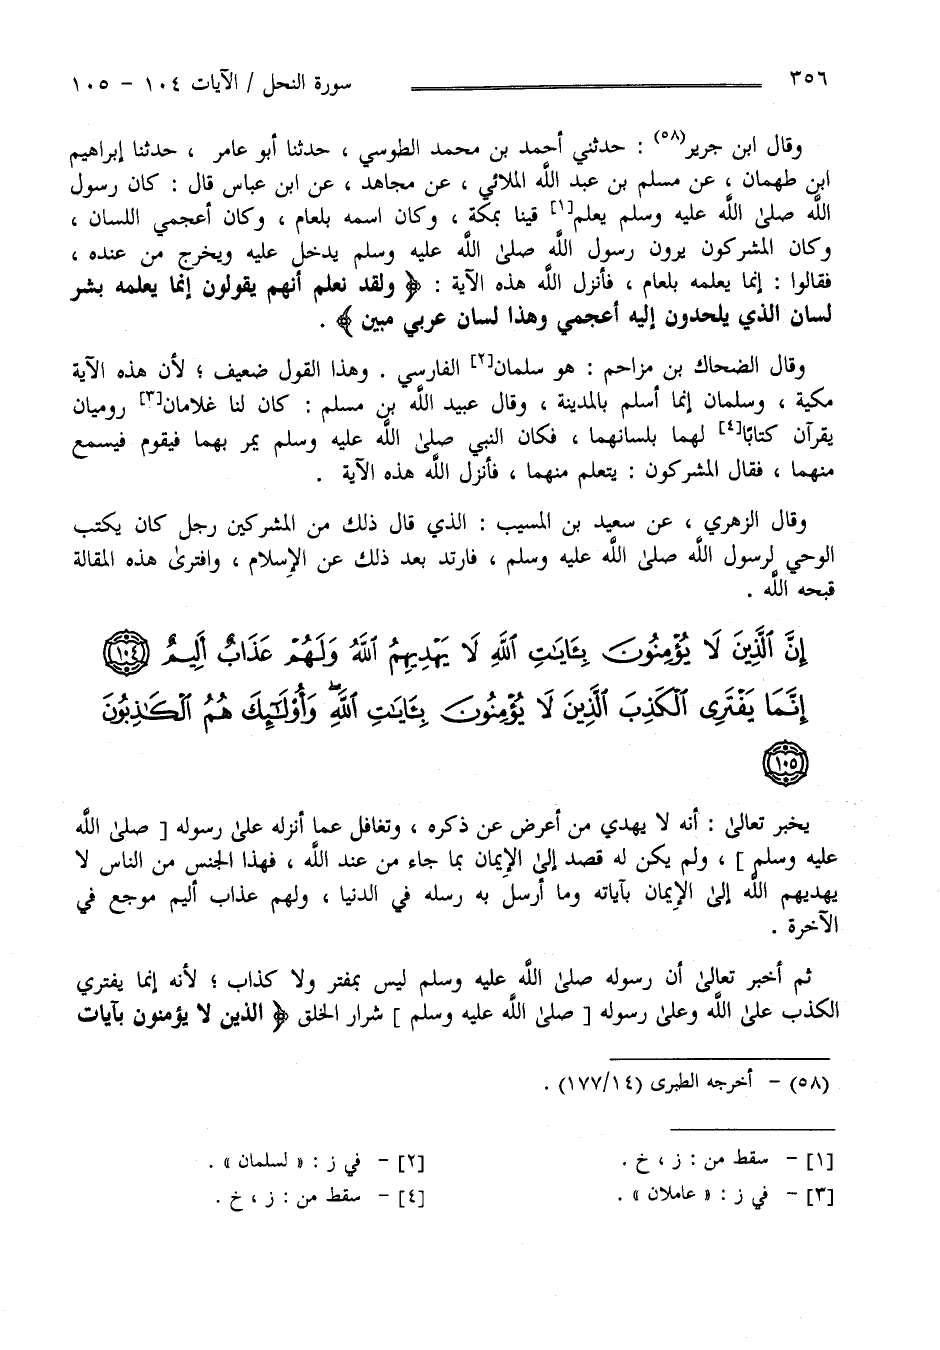 ٣٥٦ سورة النحل / الآيات ١٠٤ - ١٠٥
وقال ابن جرير(٥٨) : حدثني أحمد بن محمد الطوسي ، حدثنا أبو عامر ، حدثنا إبراهيم
ابن طهمان ، عن مسلم بن عبد اللَّه الملائي ، عن مجاهد ، عن ابن عباس قال : كان رسول
اللَّه صلىٰ اللَّه عليه وسلم يعلم[١] قينا بمكة ، وكان اسمه بلعام ، وكان أعجمي اللسان ،
وكان المشركون يرون رسول اللَّه صلىٰ اللَّه عليه وسلم يدخل عليه ويخرج من عنده ،
فقالوا : إنما يعلمه بلعام ، فأنزل اللَّه هذه الآية : ﴿ ولقد نعلم أنهم يقولون إنما يعلمه بشر
لسان الذي يلحدون إليه أعجمي وهذا لسان عربي مبين ﴾ .
وقال الضحاك بن مزاحم : هو سلمان[٢] الفارسي . وهذا القول ضعيف ؛ لأن هذه الآية
مكية ، وسلمان إنما أسلم بالمدينة ، وقال عبيد اللَّه بن مسلم : كان لنا غلامان[٣] روميان
يقرآن كتابًا[٤] لهما بلسانهما ، فكان النبي صلىٰ اللَّه عليه وسلم يمر بهما فيقوم فيسمع
منهما ، فقال المشركون : يتعلم منهما ، فأنزل اللَّه هذه الآية .
وقال الزهري ، عن سعيد بن المسيب : الذي قال ذلك من المشركين رجل كان يكتب
الوحي لرسول اللَّه صلىٰ اللَّه عليه وسلم ، فارتد بعد ذلك عن الإسلام ، وافترىٰ هذه المقالة
قبحه اللَّه .
إِنَّ ٱلَّذِينَ لَا يُؤْمِنُونَ بِـَٔايَـٰتِ ٱللَّهِ لَا يَهْدِيهِمُ ٱللَّهُ وَلَهُمْ عَذَابٌ أَلِيمٌ ١٠٤
إِنَّمَا يَفْتَرِى ٱلْكَذِبَ ٱلَّذِينَ لَا يُؤْمِنُونَ بِـَٔايَـٰتِ ٱللَّهِ ۖ وَأُوْلَـٰٓئِكَ هُمُ ٱلْكَـٰذِبُونَ
١٠٥
يخبر تعالىٰ : أنه لا يهدي من أعرض عن ذكره ، وتغافل عما أنزله علىٰ رسوله [ صلىٰ اللَّه
عليه وسلم ] ، ولم يكن له قصد إلىٰ الإيمان بما جاء من عند اللَّه ، فهذا الجنس من الناس لا
يهديهم اللَّه إلىٰ الإيمان بآياته وما أرسل به رسله في الدنيا ، ولهم عذاب أليم موجع في
الآخرة .
ثم أخبر تعالىٰ أن رسوله صلىٰ اللَّه عليه وسلم ليس بمفتر ولا كذاب ؛ لأنه إنما يفتري
الكذب علىٰ اللَّه وعلىٰ رسوله [ صلىٰ اللَّه عليه وسلم ] شرار الخلق ﴿ الذين لا يؤمنون بآيات
(٥٨) - أخرجه الطبرى (١٧٧/١٤) .
[١] - سقط من : ز ، خ . [٢] - في ز : « لسلمان » .
[٣] - في ز : « عاملان » . [٤] - سقط من : ز ، خ .